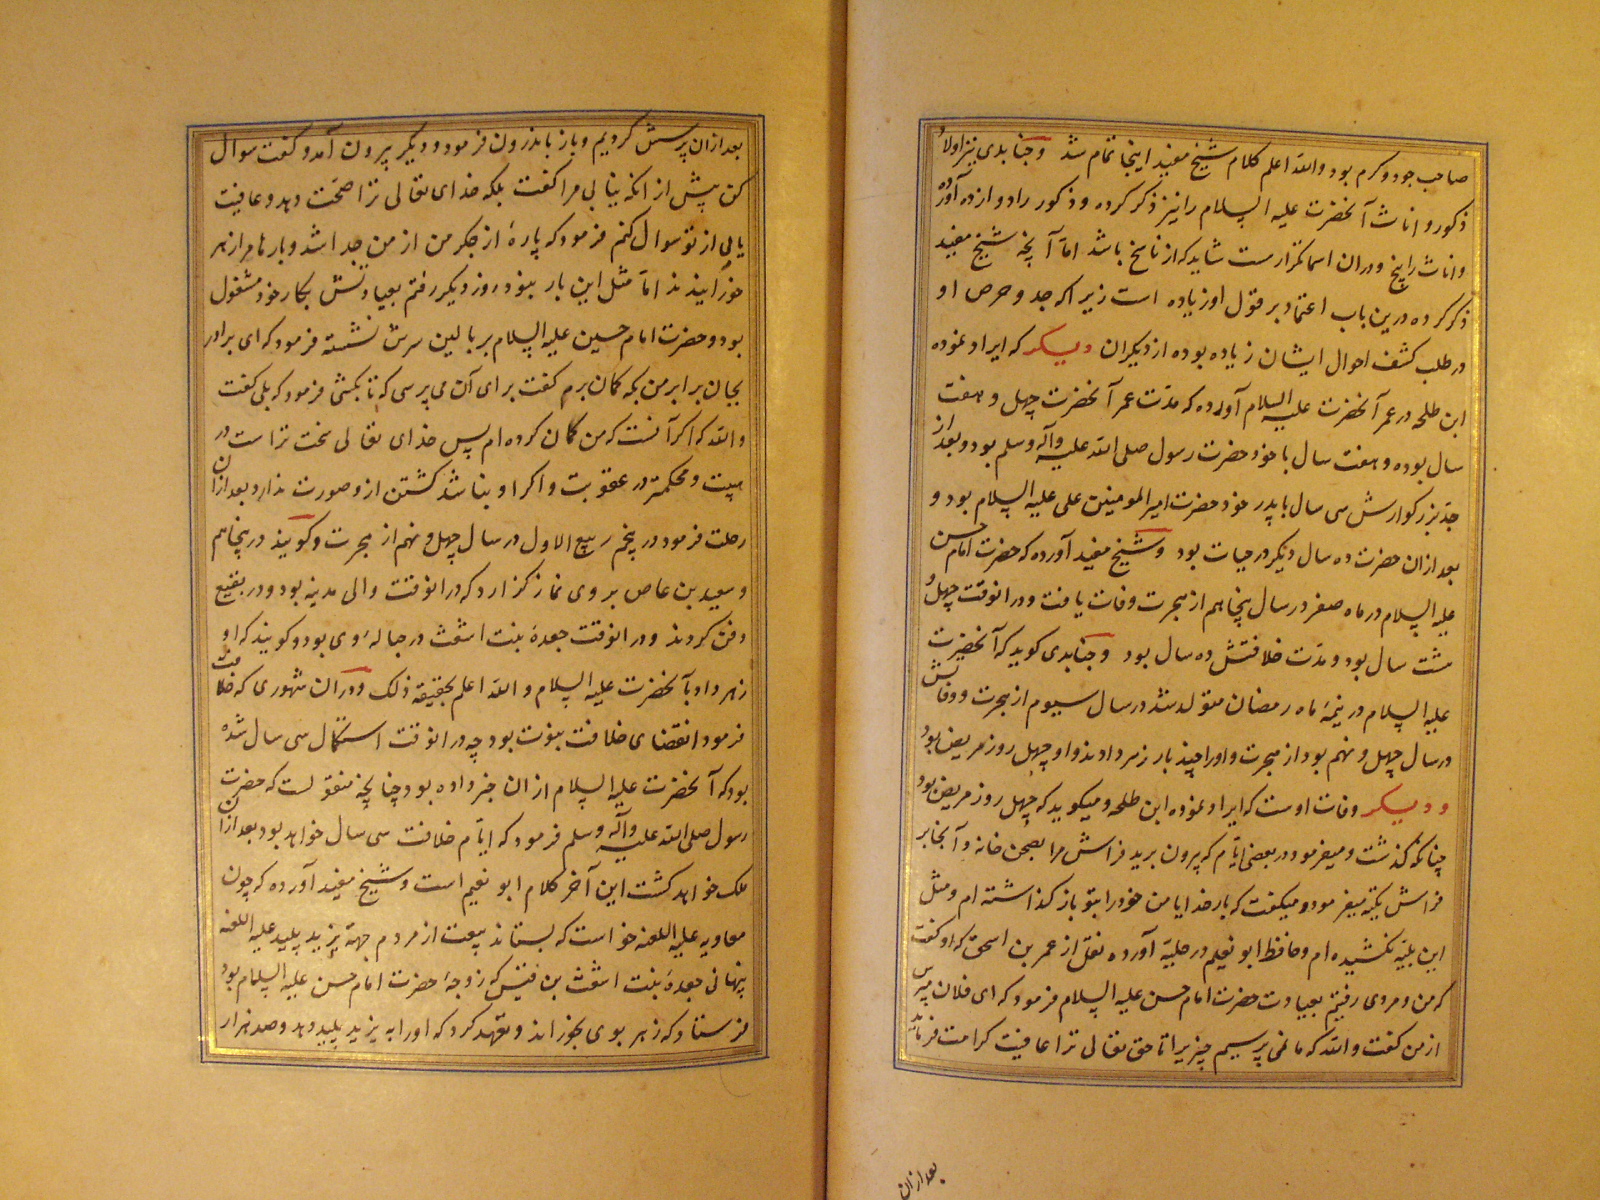 صاحب جود و کرم بود والله اعلم کلام شیخ مفید اینجا تمام شد و جنابدی نیز اولاد
ذکور و اناث آنحضرت علیه السلام را نیز ذکر کرده و ذکور را دوازده آورده
و اناث را پنج و در آن اسما تکرارست شاید که از ناسخ باشد اما آنچه شیخ مفید
ذکر کرده درین باب اعتماد بر قول او زیاده است زیرا که جد و حرص او
در طلب کشف احوال ایشان زیاده بوده از دیگران و دیگر که ایراد نموده
ابن طلحه در عمر آنحضرت علیه السلام آورده که مدت عمر آنحضرت چهل و هفت
سال بوده و هفت سال با خود حضرت رسول صلی الله علیه وآله وسلم بود و بعد از
جد بزرگوارش سی سال با پدر خود حضرت امیرالمومنین علی علیه السلام بود و
بعد ازان حضرت ده سال دیگر در حیات بود و شیخ مفید آورده که حضرت امام حسن
علیه السلام در ماه صفر در سال پنجاهم از هجرت وفات یافت و در انوقت چهل و
هشت سال بود و مدت خلافتش ده سال بود و جنابدی کوید که آنحضرت
علیه السلام در نیمۀ ماه رمضان متولد شد در سال سیوم از هجرت و وفاتش
در سال چهل و نهم بود از هجرت و او را چند بار زهر دادند و او چهل روز مریض بود
و دیگر وفات اوست که ایراد نموده ابن طلحه و میکوید که چهل روز مریض بود
چنانکه کذشت و میفرمود در بعضی ایام که بیرون برید فراش مرا بصحن خانه و آنجا بر
فراش تکیه میفرمود و میکفت که بار خدایا من خود را بتو باز کذاشته ام و مثل
این بلیه نکشیده ام و حافظ ابو نعیم در حلیه آورده نقل از عمر بن اسحق که او کفت
که من و مردی رفتیم بعیادت حضرت امام حسن علیه السلام فرمود که ای فلان بپرس
از من کفت والله که ما نمی پرسیم چیزی را تا حق تعالی ترا عافیت کرامت فرماید
بعد ازان
بعد ازان پرسش کردیم و باز باندرون فرمود و دیگر بیرون آمد و کفت سوال
کن پیش از انکه نیابی مرا کفت بلکه خدای تعالی ترا صحت دهد و عافیت
یابی از تو سوال کنم فرمود که پارۀ از جکر من از من جدا شد و بارها مرا زهر
خورانیدند اما مثل این بار نبود روز دیکر رفتم بعیادتش بکار خود مشغول
بود و حضرت امام حسین علیه السلام بر بالین سرش نشسته فرمود که ای برادر
بجان برابر من بکه کمان برم کفت برای آن می پرسی که تا بکشی فرمود که بلی کفت
والله که اکر آنست که من کمان کرده ام پس خدای تعالی سخت تر است در
هیبت و محکمتر در عقوبت و اکر او نباشد کشتن از و صورت ندارد و بعد ازان
رحلت فرمود در پنجم ربیع الاول در سال چهل و نهم از هجرت و کویند در پنجاهم
و سعید بن عاص بر وی نماز کزارد که در انوقت والی مدینه بود و در بقیع
دفن کردند و در انوقت جعدۀ بنت اشعث در حبالۀ وی بود و کویند که او
زهر داد بآنحضرت علیه السلام والله اعلم بحقیقة ذلک و در ان شهوری که خلافت
فرمود انقضای خلافت نبوت بود چه در انوقت استکمال سی سال شده
بود که آنحضرت علیه السلام ازان خبر داده بود چنانچه منقولست که حضرت
رسول صلی الله علیه وآله وسلم فرمود که ایام خلافت سی سال خواهد بود بعد ازان
ملک خواهد کشت این آخر کلام ابو نعیم است و شیخ مفید آورده که چون
معاویه علیه اللعنه خواست که بستاند بیعت از مردم جهة یزید پلید علیه اللعنه
پنهانی جعدۀ بنت اشعث بن قیس که زوجۀ حضرت امام حسن علیه السلام بود
فرستاد که زهر بوی بخوراند و تعهد کرد که او را به یزید پلید دهد و صد هزار